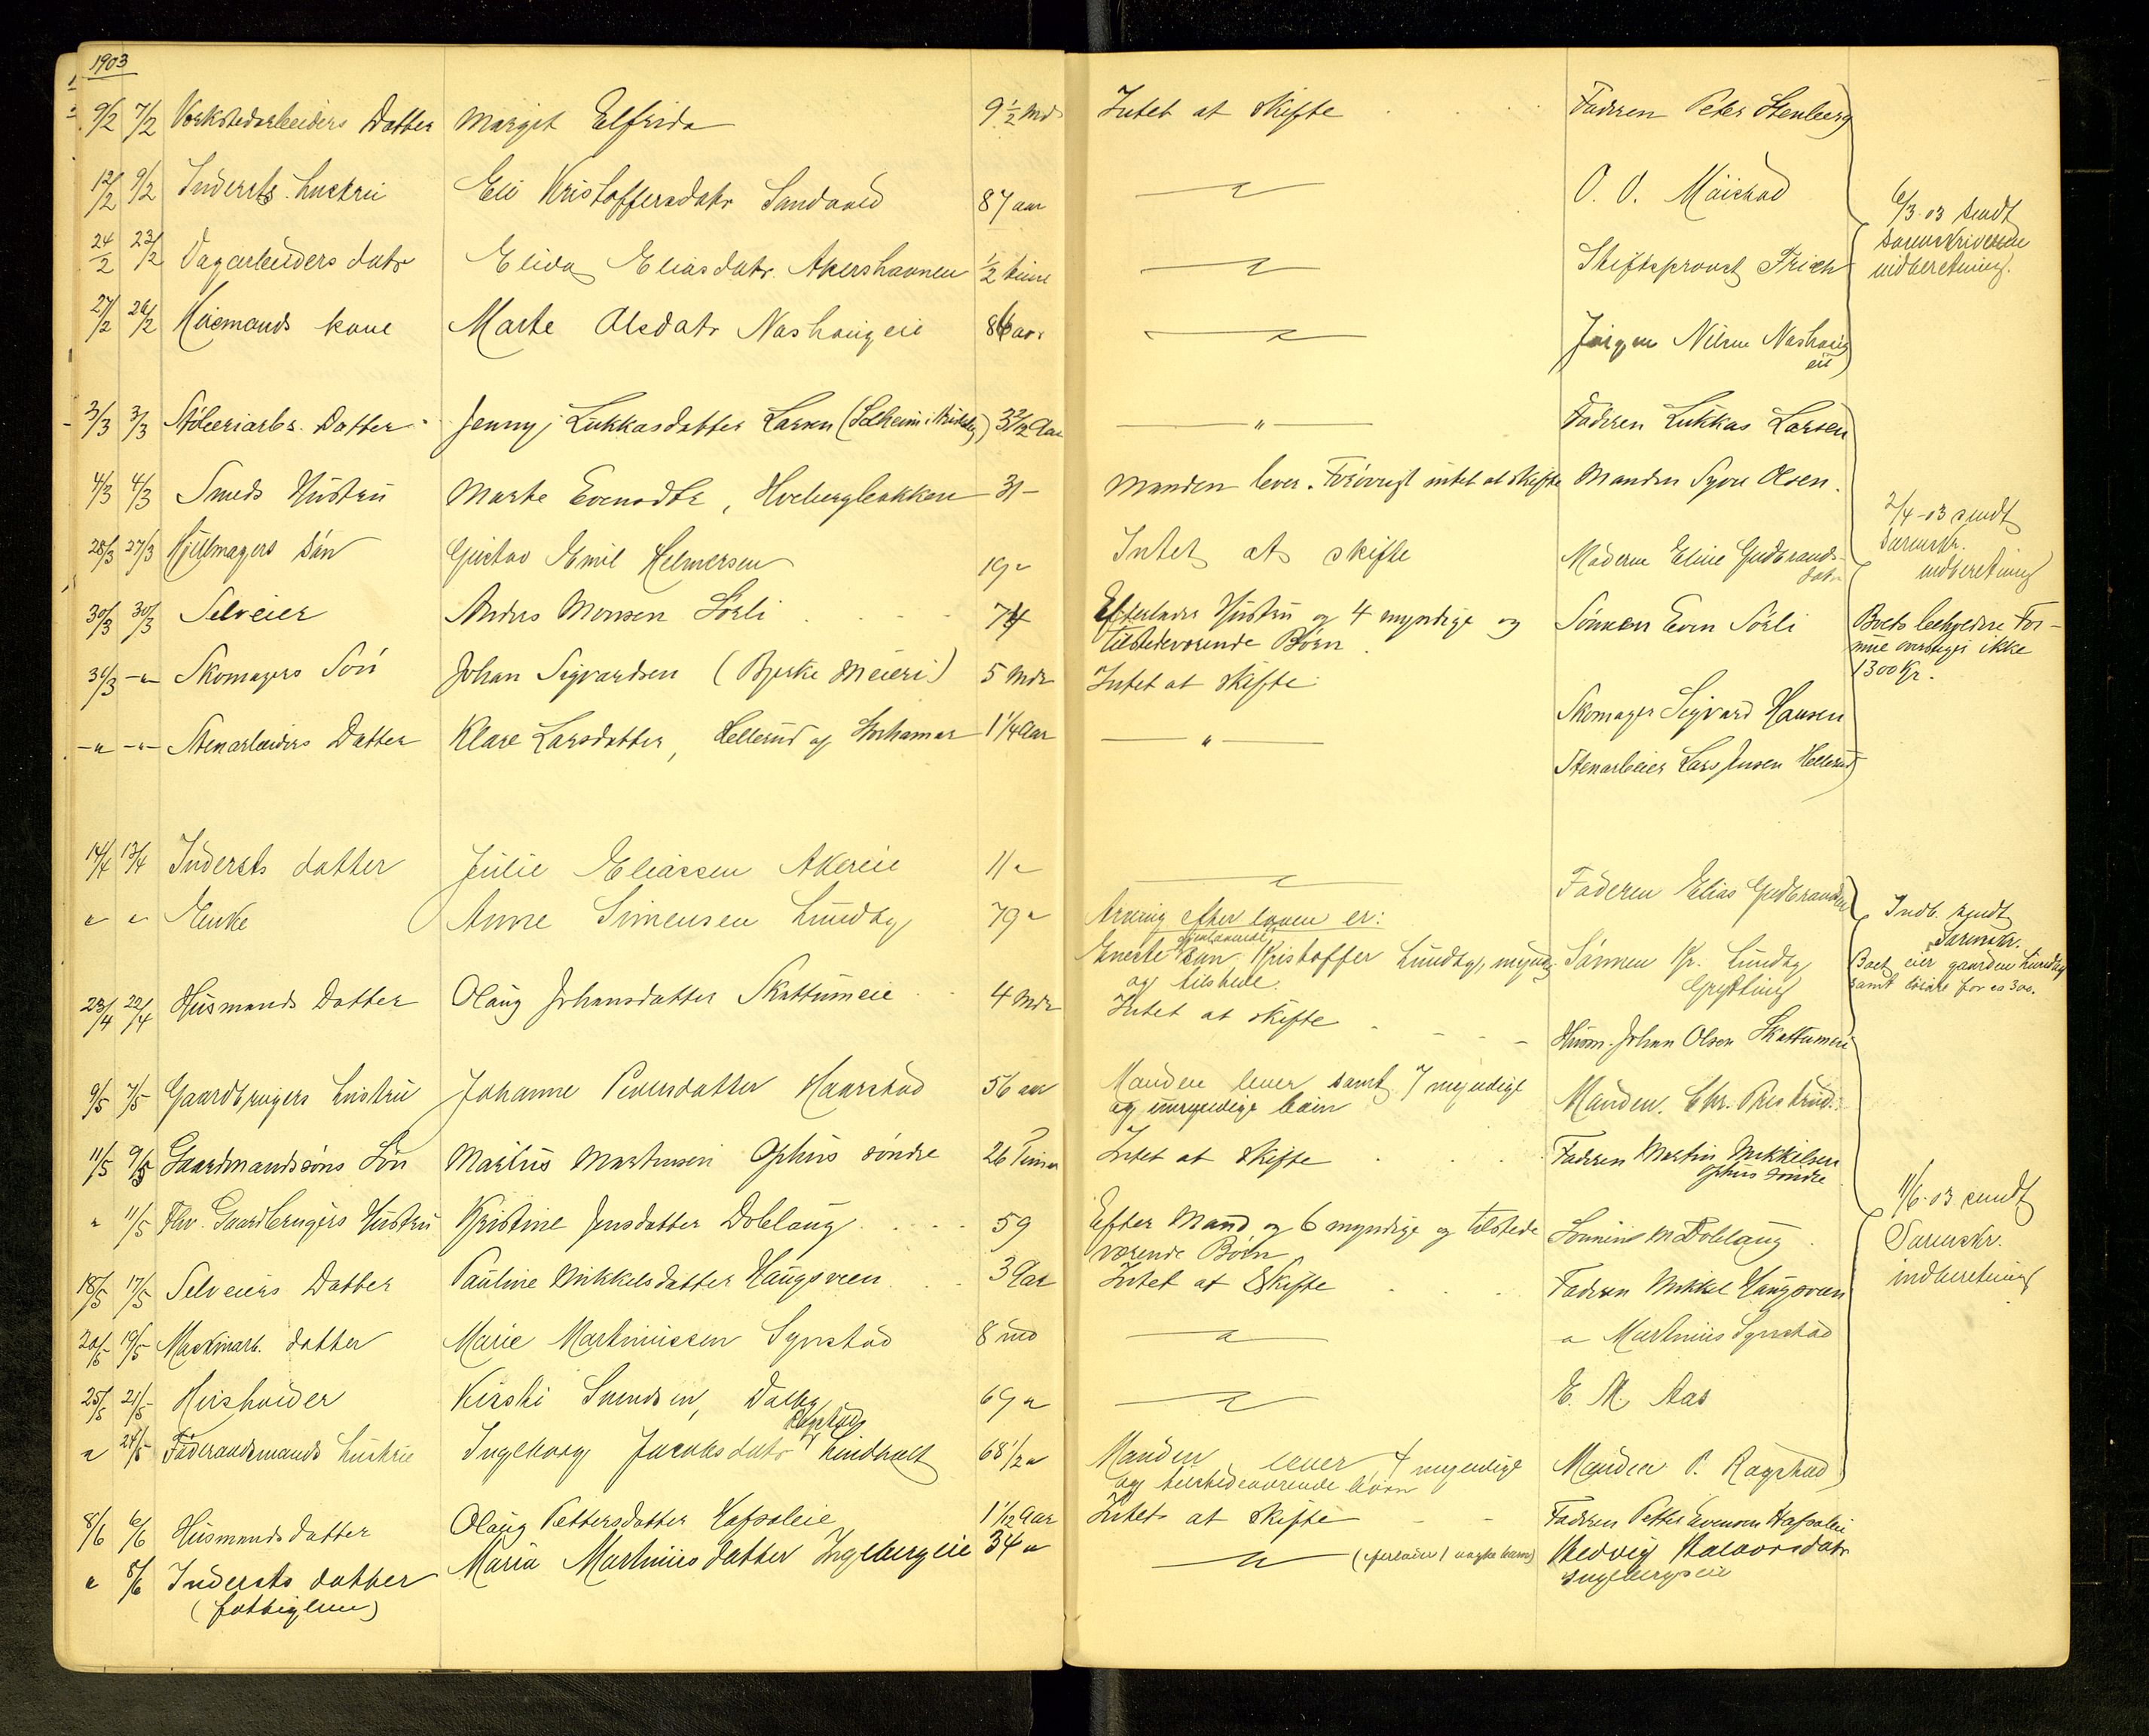 1903
9/2 7/2 Verkstedarbeiders Datter Margit Elfrida 9 1/2 Md Intet at skifte Faderen Peter Stenberg
12/2 9/2 Inderts hustru Eli Kristoffersdatr Sandvold 87 aar —"— O. O. Mäistad
24/2 23/2 datr Elida Eliasdatr. Akershavnen 1/2 time —"— Stiftsprovst Frich
6/3 03 sendt
Sorenskriveren
indberetning.
27/2 26/2 kone Marte Olsdatr Nashaugeie 86 aar —"— Jørgen Nilsen Nashaug
eie
3/3 3/3 Støberiarb. Datter Jenny Lukkasdatter Larsen (Solheim i ) 3 2/12 Aar —"— Faderen Lukkas Larsen
4/3 4/3 Smeds Hustru Marte Evensdtr, Hvebergbakken 31 — Manden lever. Forøvrigt intet at skifte Manden Syver Olsen.
28/3 27/3 Hjulmagers Søn Gustav Emil Helmersen 19 " Intet at skifte Moderen Eline Gudbrands-
datr
2/4-03 sendt
Sorenskr.
indberetning
30/3 30/3 Selveier Anders Monsen Sörli 74 Efterlader Hustru og 4 myndige og Sönnen Even Sörli
tilstedeværende Børn.
Boets beholdne For-
mue overstiger ikke
1300 Kr.
31/3 —"— Skomagers Sön Johan Sigvardsen (Bjerke Meieri) 5 Mdr Intet at skifte Skomager Sigvard Hansen
—"— —"— Stenarbeiders Datter Klare Larsdatter, Hellerud af Storhamar 1 1/4 Aar —"— Stenarbeier Lars Jensen Hellerud
14/4 13/4 Inderts datter Julie Eliassen Akereie 11 " —"— Faderen Elias Gudbrandsen
" " Enke Anne Simensen Lundby 79 " Arving efter loven er:
Eneste gjenlevende søn Kristoffer Lundby, myndig Sønnen Kr. Lundby
og tilstede. Grytting
Indb. sendt
Sorenskr.
Boet eier gaarden Lundby
samt løsøre for ca 300.
23/4 22/4 Husmands Datter Olaug Johansdatter Skattumeie 4 Mdr Intet at skifte Husm. Johan Olsen Skattumeie
9/5 7/5 Gaardbrugers hustru Johanne Pedersdatter Haarstad 56 aar Manden lever samt 7 myndige Manden. Chr.
og umyndige børn
11/5 9/5 Gaardmandssøns Søn Marius Martinsen Ophus söndre 26 Timer Intet at skifte Faderen Martin Mikkelsen
Ophus söndre
" 11/5 Fhv. Gaardbrugers Hustru Kristine Jensdatter Doblaug 59 Efter Mand og 6 myndige og tilstede Sønnen M Doblaug
værende Børn
11/6-03 sendt
Sorenskr.
indberetning
18/5 17/5 Selveiers Datter Pauline Mikkelsdatter Haugsveen 3 Aar Intet at Skifte Faderen Mikkel Haugsveen
20/5 19/5 Maskinarb. datter Marie Martinussen Synstad 8 md —"— " Martinius Synstad
25/5 21/5 Kirsti Svendsen, Dalby 69 " —"— E. M. Aas
Ragstad
" 24/5 Föderaadsmands hustrue Ingeborg Jacobsdatr Lindholt 68 1/2 " Manden lever 4 myndige Manden P. Ragstad
og tilstedeværende børn
8/6 6/6 Husmands datter Olaug Pettersdatter Hafsaleie 1 1/12 Aar Intet at skifte Faderen Petter Evensen Hafsaleie
" 8/6 Inderts datter Maria Martiniusdatter Ingelbergeie 34 " —"— (efterlader 1 uægte barn) Hedvig Halvorsdatr
(fattiglem) Ingelbergseie